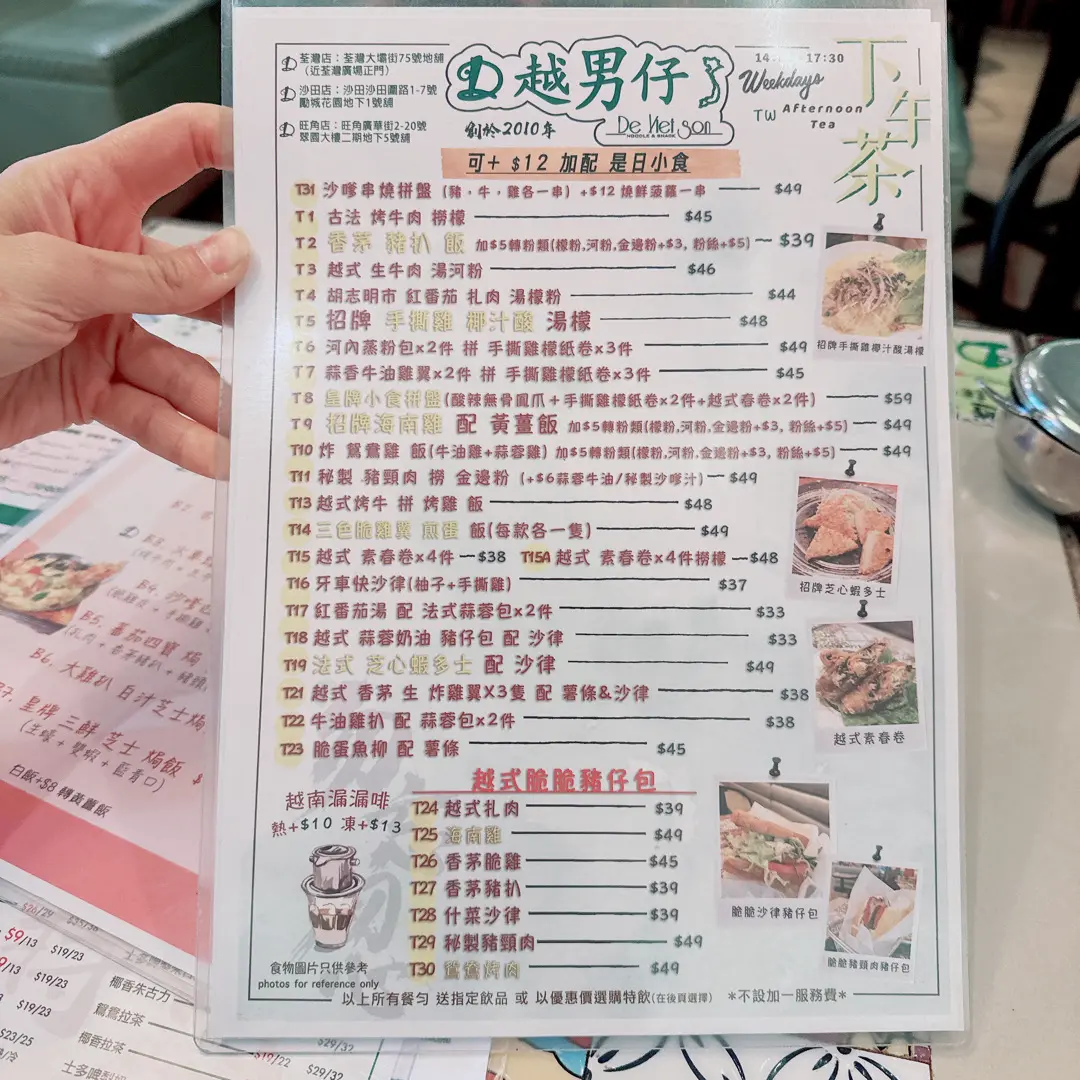 荃灣店：荃灣大壩街75號地舖
（近荃灣廣場正門）
沙田店：沙田沙田圍路1-7號
勵城花園地下1號舖
旺角店：旺角廣華街2-20號
翠園大樓二期地下5號舖
越男仔
創於2010年
De Viet Son
NOODLE & SNACK
17:30
Weekdays
TW Afternoon
Tea
下午茶
可+ $12 加配 是日小食
T31 沙嗲串燒拼盤 (豬，牛，雞各一串) +$12 燒鮮菠蘿一串 $49
T1 古法 烤牛肉 撈檬 $45
T2 香茅 豬扒 飯 加$5轉粉類(檬粉,河粉,金邊粉+$3, 粉絲+$5) $39
T3 越式 生牛肉 湯河粉 $46
T4 胡志明市 紅番茄 扎肉 湯檬粉 $44
T5 招牌 手撕雞 椰汁酸 湯檬 $48
T6 河內蒸粉包x2件 拼 手撕雞檬紙卷x3件 $49
T7 蒜香牛油雞翼x2件 拼 手撕雞檬紙卷x3件 $45
T8 皇牌小食拼盤(酸辣無骨鳳爪+手撕雞檬紙卷x2件+越式春卷x2件) $59
T9 招牌海南雞 配 黃薑飯 加$5轉粉類(檬粉,河粉,金邊粉+$3, 粉絲+$5) $49
T10 炸 鴛鴦雞 飯(牛油雞+蒜蓉雞) 加$5轉粉類(檬粉,河粉,金邊粉+$3, 粉絲+$5) $49
T11 秘製 豬頸肉 撈 金邊粉 (+$6蒜蓉牛油/秘製沙嗲汁) $49
T13 越式烤牛 拼 烤雞 飯 $48
T14 三色脆雞翼 煎蛋 飯(每款各一隻) $49
T15 越式 素春卷x4件 $38 T15A 越式 素春卷x4件撈檬 $48
T16 牙車快沙律(柚子+手撕雞) $37
T17 紅番茄湯 配 法式蒜蓉包x2件 $33
T18 越式 蒜蓉奶油 豬仔包 配 沙律 $33
T19 法式 芝心蝦多士 配 沙律 $49
T21 越式 香茅 生 炸雞翼X3隻 配 薯條&沙律 $38
T22 牛油雞扒 配 蒜蓉包x2件 $38
T23 脆蛋魚柳 配 薯條 $45
越式脆脆豬仔包
T24 越式扎肉 $39
T25 海南雞 $49
T26 香茅脆雞 $45
T27 香茅豬扒 $39
T28 什菜沙律 $39
T29 秘製豬頸肉 $49
T30 鴛鴦烤肉 $49
越南漏漏啡
熱+$10 凍+$13
食物圖片只供參考
photos for reference only
以上所有餐勻 送指定飲品 或 以優惠價選購特飲(在後頁選擇) *不設加一服務費*
招牌手撕雞椰汁酸湯檬
招牌芝心蝦多士
越式素春卷
脆脆沙律豬仔包
脆脆豬頸肉豬仔包
B5. 番茄四寶 焗
B6. 大雞扒 白汁芝士焗
B7. 皇牌 三鮮 芝士 焗飯
(生蠔+雙蝦+藍青口)
白飯+$8 轉黃薑飯
$9/13 $19/23
$19/23
$19/23
$23/25
椰香朱古力
鴛鴦拉茶
椰香拉茶
$29/32
$19/22 $29/32